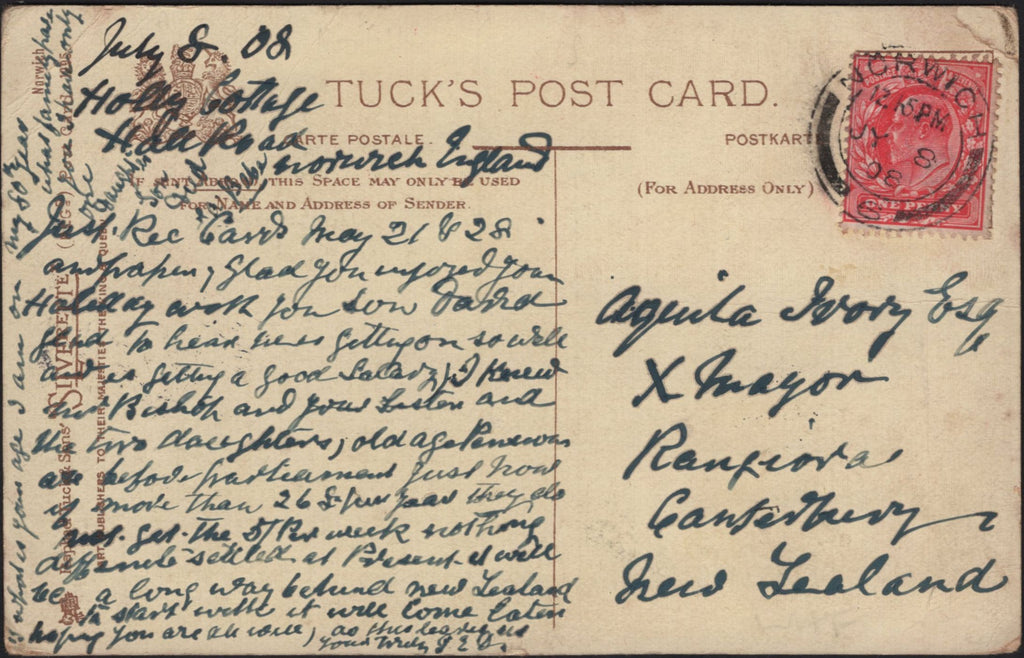 July 8. 08
Holly Cottage
Hall Road
Norwich England
TUCK'S POST CARD.
CARTE POSTALE.
POSTKART
IF SENT THIS SPACE MAY ONLY BE USED
FOR NAME AND ADDRESS OF SENDER.
(FOR ADDRESS ONLY)
NORWICH
12.15PM
JY 8
08
POSTAGE
ONE PENNY
Just Rec Cards May 21 & 28
and papers, glad you enjoyed your
Holliday with you Son David
glad to hear he is getting on so well
and is getting a good Salary, I knew
Bishop and your Sister and
the two daughters, old age Pensions
are before parliament Just Now
if more than 26 £ per year they do
not get the 5/ Per week nothing
deffinite settled at Present it will
be a long way behind New Zealand
to start with it will Come Later
hoping you are all well, as this leaves us
your truly J E D.
Aquila Ivory Esq
X Mayor
Rangiora
Canterbury
New Zealand
what is your age I am on my 80th year
what family have you I have only
one daughter
Raphael Tuck & Sons' "SILVERETTE"
ART PUBLISHERS TO THEIR MAJESTIES THE KING QUEEN
Norwich